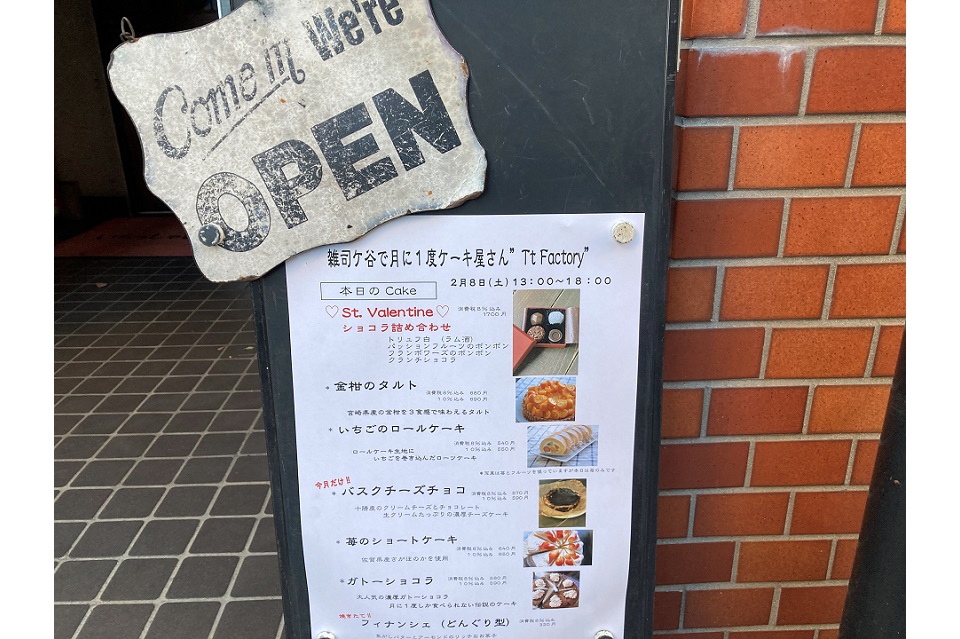 Come in We're
OPEN
雑司ケ谷で月に1度ケーキ屋さん”Tt Factory”
2月8日(土)13:00~18:00
本日の Cake
♡St. Valentine♡
消費税8%込み
1700円
ショコラ詰め合わせ
トリュフ白 (ラム酒)
パッションフルーツのボンボン
フランボワーズのボンボン
クランチショコラ
* 金柑のタルト
消費税8%込み 680円
10%込み 690円
宮崎県産の金柑を3食感で味わえるタルト
* いちごのロールケーキ
消費税8%込み 540円
10%込み 550円
ロールケーキ生地に
いちごを巻き込んだローツケーキ
今月だけ!!
* バスクチーズチョコ
消費税8%込み
10%込み
十勝産のクリームチーズとチョコレート
生クリームたっぷりの濃厚チーズケーキ
* 苺のショートケーキ
消費税8%込み 640円
10%込み 650円
佐賀県産さがほのかを使用
*ガトーショコラ
消費税8%込み
10%込み
大人気の濃厚ガトーショコラ
月に1度しか食べられない伝説のケーキ
焼きたて!!
フィナンシェ (どんぐり型)
消費税8%込み
焦がしバターとアーモンドのリッチなお菓子